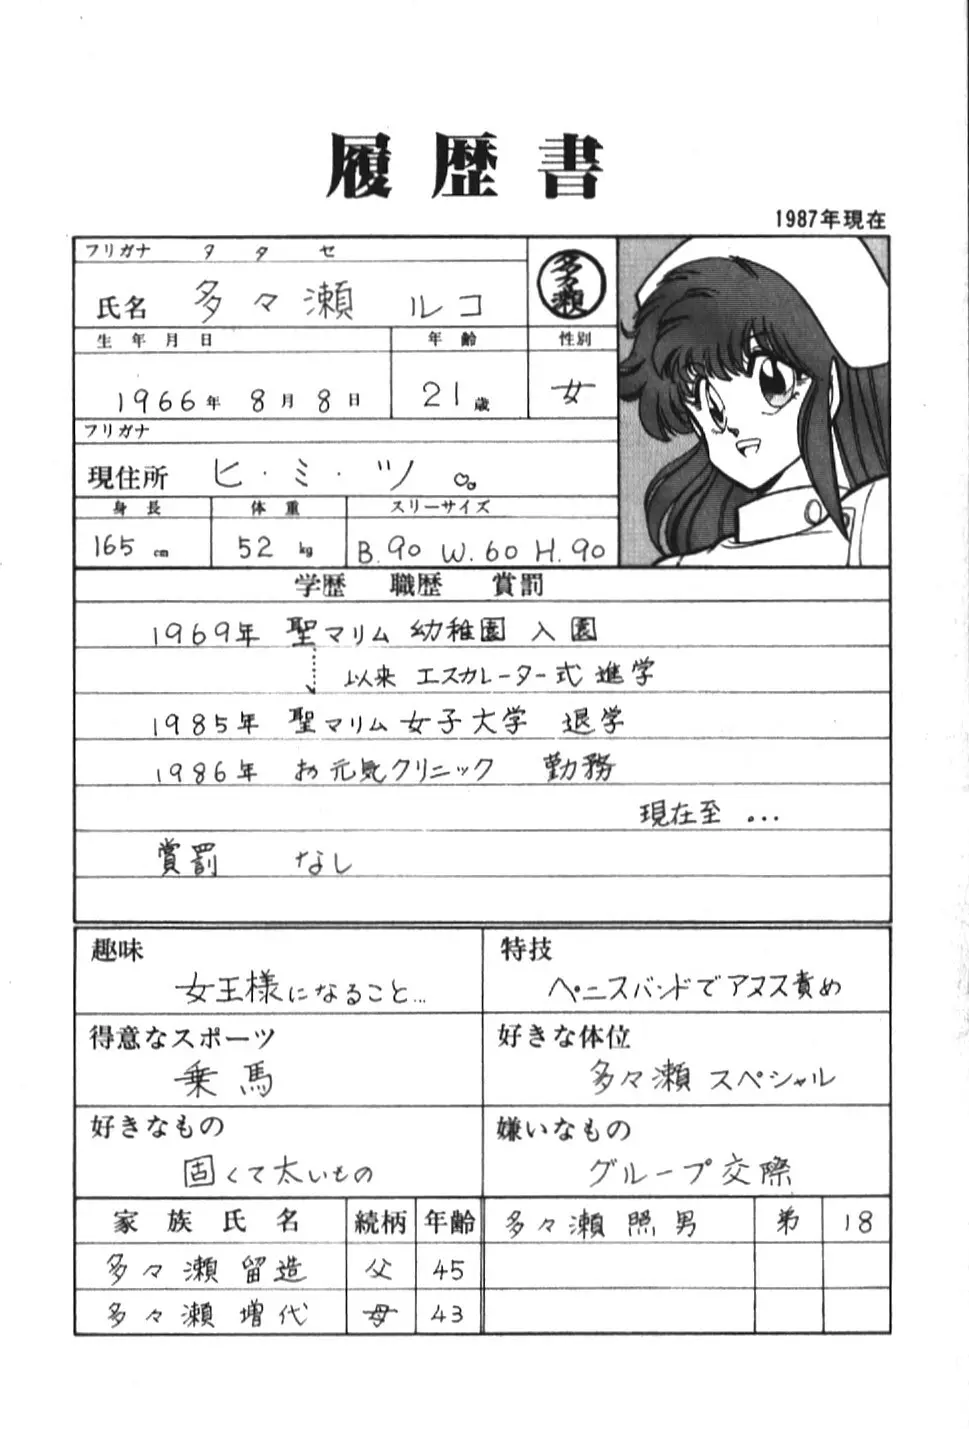 履歴書
1987年現在
フリガナ タ タ セ
氏名 多々瀬 ルコ
多々瀬
生年月日 年齢 性別
1966年 8月 8日 21歳 女
フリガナ
現住所 ヒ・ミ・ツ
身長 体重 スリーサイズ
165cm 52kg B.90 W.60 H.90
学歴 職歴 賞罰
1969年 聖マリム 幼稚園 入園
以来 エスカレーター式 進学
1985年 聖マリム女子大学 退学
1986年 お元気クリニック 勤務
現在至 ...
賞罰 なし
趣味
女王様になること...
特技
ペニスバンドでアヌス責め
得意なスポーツ
乗馬
好きな体位
多々瀬 スペシャル
好きなもの
固くて太いもの
嫌いなもの
グループ交際
家族氏名 続柄 年齢
多々瀬 留造 父 45
多々瀬 増代 母 43
多々瀬 照男 弟 18